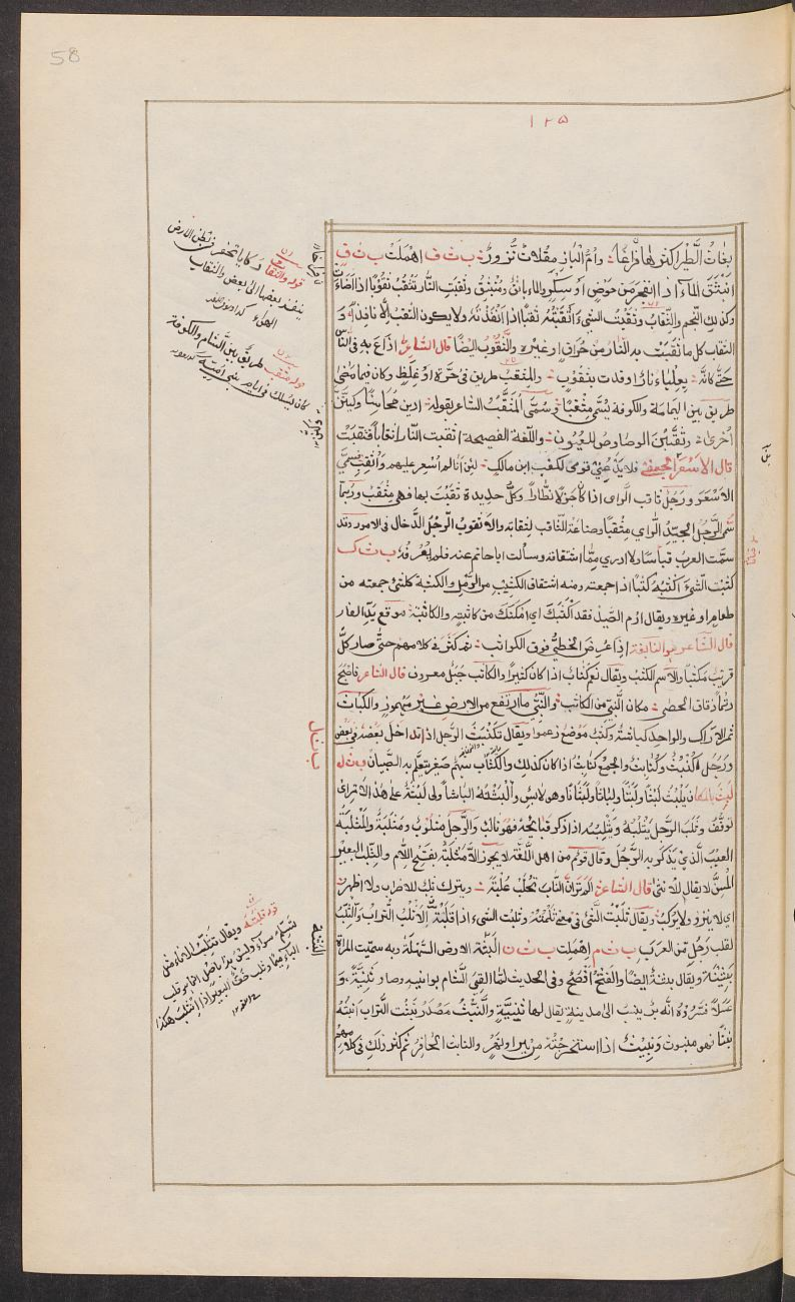 58
١٢٥
بغاث الطير اكثرها فراخا وام الباز مقلات نزور ب ث ف اهملت ب ث ق
انبثق الماء اذا انفجر من حوض او سكر والماء باثق ومنبثق وثقبت النار تثقب ثقوبا اذا اضاءت
وكذلك النجم والثقاب وثقبت الشيء اثقبه ثقبا اذا انفذته ولا يكون الثقب الا نافذا و
الثقاب كل ما ثقبت به النار من حراق او غيره والثقوب ايضا قال الشاعر اذاع به في الناس
حتى كانه بعلياء نار اوقدت بثقوب والمثقب طريق في حرة او غلظ وكان فيما مضى
طريق بين اليمامة والكوفة يسمى مثقبا وسمي المثقب الشاعر بقوله ارين محاسنا وكنن
اخرى وثقبن الوصاوص للعيون واللغة الفصيحة اثقبت النار اثقابا فثقبت
قال الاسعر الجعفي فلا يدعني قومي لكعب ابن مالك لئن انا لم اسعر عليهم واثقب فسمي
الاسعر ورجل ثاقب الراي اذا كان جزلا نظارا وكل حديدة ثقبت بها فهي مثقب وربما
سمي الرجل الجيد الراي مثقبا وصناعة الثاقب لثقابة والاثقوب الرجل الدخال في الامور وقد
سمت العرب قباثا ولا ادري مما اشتقاقه وسالت ابا حاتم عنه فلم يعرفه ب ث ك
كثبت الشيء اكثبه كثبا اذا جمعته ومنه اشتقاق الكثيب من الرمل والكثبة كلشي جمعته من
طعام او غيره ويقال ارم الصيد فقد اكثبك اي امكنك من كاثبته والكاثبة موقع يد الفارس
قال الشاعر هو النابغة اذا عرض الخطي فوق الكواثب ثم كثر في كلامهم حتى صار كل
قريب مكثبا والاسم الكثب ويقال نعم كثاب اذا كان كثيرا والكاثب جبل معروف قال الشاعر فاصبح
رتما دقاق الحصى مكان النبي من الكاثب والنبي ما ارتفع من الارض غير مهموز والكباث
ثمر الاراك والواحد كباثة وكثب موضع زعموا ويقال تكنبث الرجل اذا تداخل بعضه في بعض
ورجل كنبث وكنابث والجميع كنابث اذا كان كذلك والكثاب سهم صغير يتعلم به الصبيان ب ث ل
لبث بالمكان يلبث لبثا ولبثا ولباثا ولبثانا وهو لابث والبثته الباثا ولي لبثة على هذا الامر اي
توقف وثلب الرجل يثلبه ويثلبه اذا ذكر قبايحه فهو ثالب والرجل مثلوب ومثلبة والمثلبة
العيب الذي يذكر به الرجل وقال قوم من اهل اللغة لا يجوز الا مثلبة بفتح اللام والثلب البعير
المسن لا يقال للانثى قال الشاعر الم تر ان الناب تحلب علبة ويترك ثلب لا ضراب ولا ظهر
اي لا ينزو ولا يركب ويقال ثلبت الشيء في معنى ثلمته وثلبت الشيء اذا قلبته الاثلب التراب والثلب
لقب رجل من العرب ب ث م اهملت ب ث ن البثنة الارض السهلة وبه سميت المراة
بثينة ويقال بثنة ايضا والفتح افصح وفي الحديث لما القى الشام بوانيه وصار بثنية و
عسلا فسروه انه بر ينسب الى مدينة يقال لها بثنية والنبث مصدر نبثت التراب انبثه
نبثا فهو منبوث ونبيث اذا استخرجته من بير او نهر والنابث الحافر ثم كثر ذلك في كلامهم
قوله والثقاب
ينفذ بعضها الى بعض والنقاب
قوله مثقب طريق بين الشام والكوفة
كان يسلك في ايام بني امية
ب ث ل
قوله قلبته ويقال
البثنة